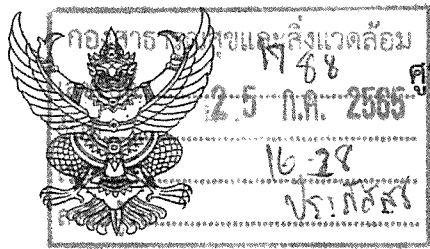 กองสาธารณสุขและสิ่งแวดล้อม
1788
ศู
25 ก.ค. 2565
16-28
ประภัสสร